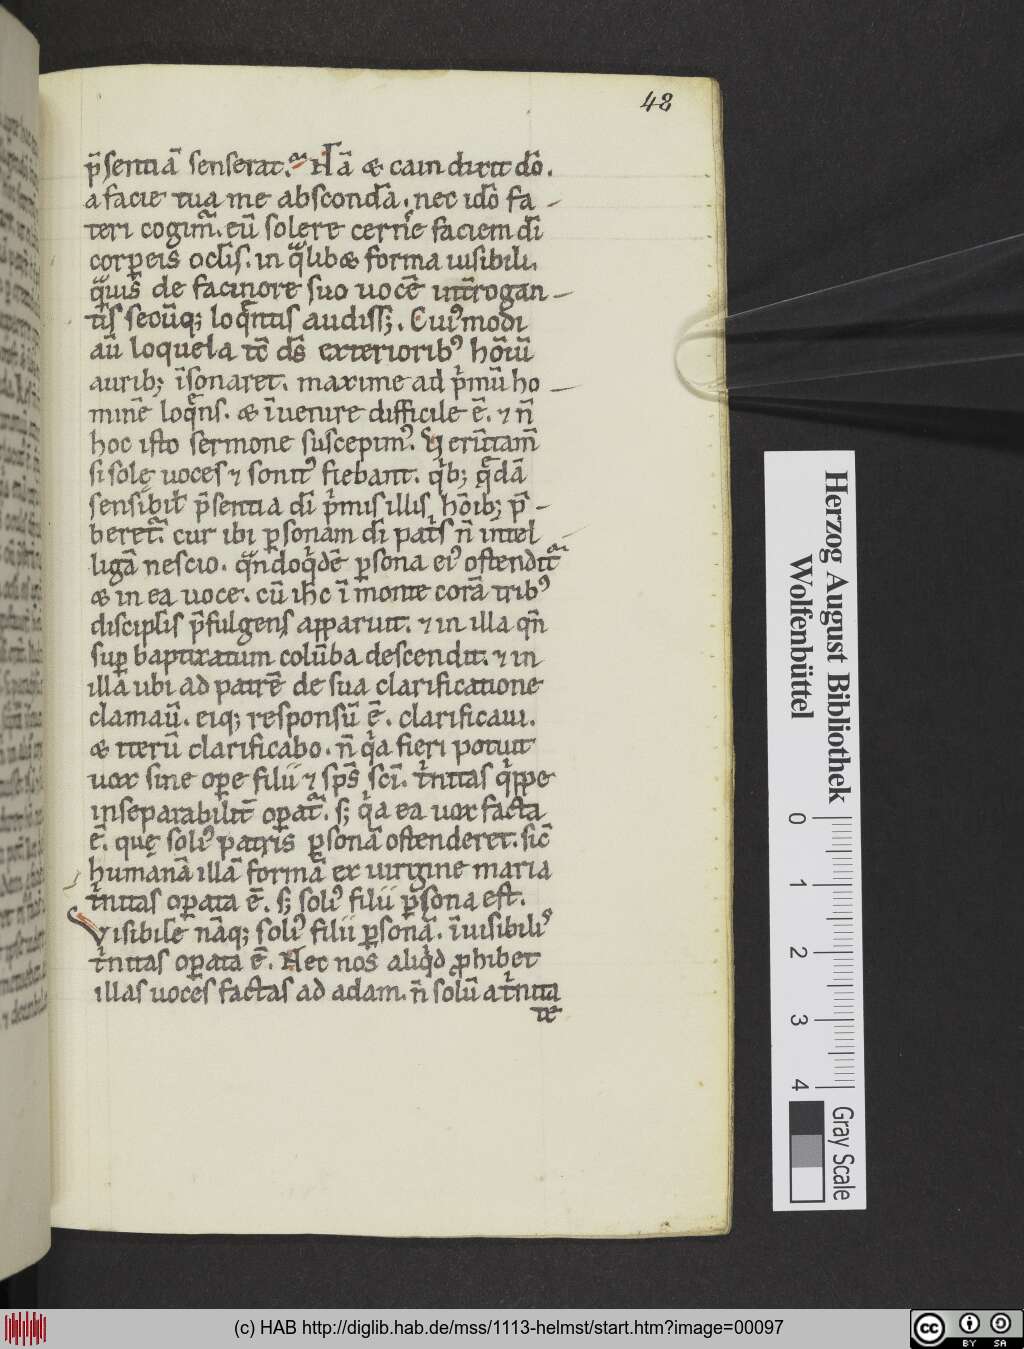 48
p̄sentiā senserat. Nā & cain dixit dō.
a facie tua me abscondā. nec idō fa-
teri cogim̄. eū solere cern̄e faciem dī
corpeis oclīs. in q̄lib& forma uisibili.
q̄uis de facinore suo uocē int̄rogan-
tis seoūq; loq̄ntis audiss;. Cui9modi
aū loquela tc̄ dS̄ exteriorib9 hōiū
aurib; īsonaret. maxime ad p̄mū ho-
minē loq̄ns. & īuenire difficile ē. ⁊ n̄
hoc isto sermone suscepim9. Verūtam̄
si solę uoces ⁊ sonit9 fiebant. qib; q̄dā
sensibilit̄ p̄sentia dī pimis illis hōib; p̄-
beret̄. cur ibi psonam dī pat̄s n̄ intel
ligā nescio. q̄ndoqidē psona ei9 ostendit̄
& in ea uoce. cū ihc ī monte corā trib9
disciplis p̄fulgens apparuit. ⁊ in illa qn̄
sup baptizatum colūba descendit. ⁊ in
illa ubi ad patrē de sua clarificatione
clamaū. eiq; responsū ē. clarificaui.
& iterū clarificabo. n̄ qia fieri potuit
uox sine ope filii ⁊ sp̄s scī. tinitas qippe
inseparabilit̄ opat̄. s; qia ea uox facta
ē. quę soli9 patris psonā ostenderet. sic̄
humanā illā formā ex uirgine maria
tinitas opata ē. s; soli9 filii psona est.
Visibilē nāq; soli9 filii psonā. īuisibili9
tinitas opata ē. Nec nos aliqid phibet
illas uoces factas ad adam. n̄ solū a tinita
te
Herzog August Bibliothek
Wolfenbüttel
0 1 2 3 4
Gray Scale
(c) HAB http://diglib.hab.de/mss/1113-helmst/start.htm?image=00097
cc BY SA